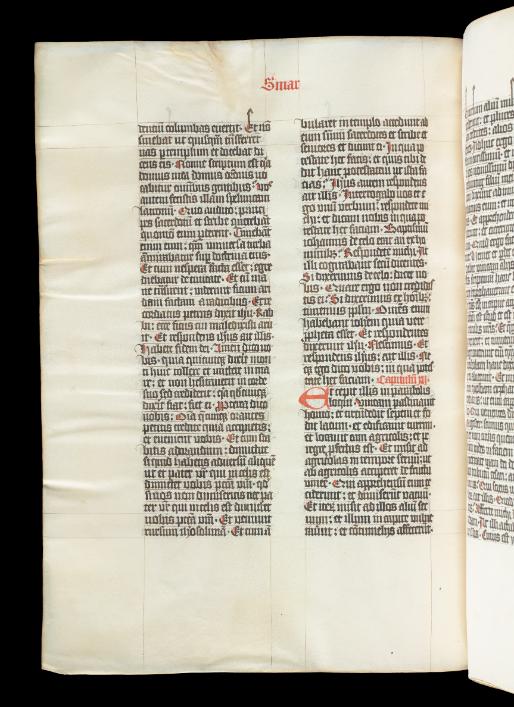 S mar
dentiū columbas euertit. Et nō
sinebat ut quisq̄ trāsferret
uas per templum et docebat di
cens eis. Nonne scriptum est qa
domus mea domus orōnis uo
cabitur cunctis gentibus. Vos
autem fecistis illam speluncam
latronū. Quo audito: princi
pes sacerdotū et scribe querebāt
quomodo eum ꝑderent. Timebāt
enim eum: qm̄ uniuersa turba
ammirabatur sup doctrina eius.
Et cum uespera facta esset: egre
diebatur de ciuitate. Et cū ma
ne transirent: uiderunt ficum ari
dam factam a radicibus. Et re
cordatus petrus dixit ihu. Rab
bi: ecce ficus cui maledixisti aru
it. Et respondens ihsus ait illis.
Habete fidem dei. Amen dico uo
bis: quia quicunqꝫ dixerit mon
ti huic tollere et mittere in ma
re: et non hesitauerit in corde
suo sed crediderit: qa qdcunqꝫ
dixerit fiat: fiet ei. Ꝓterea dico
uobis: Oīa quecunqꝫ orantes
petitis credite quia accipietis:
et euenient uobis. Et cum sta
bitis ad orandum: dimittite
si quid habetis aduersū aliquē
ut et pater ur̄ qui in celis est
dimittat uobis pctā ur̄a. qd
si uos non dimiseritis nec pa
ter ur̄ qui in celis est dimittet
uobis pctā ur̄a. Et ueniunt
rursum iherosolimā. Et cum ā
bularet in templo accedunt ad
eum sūmi sacerdotes et scribe et
seniores et dicunt ei. In qua p
testate hec facis: et quis tibi de
dit hanc potestatem ut ista fa
cias. Ihsus autem respondens
ait illis. Interrogabo uos et e
go unū uerbum: respondete mi
chi: et dicam uobis in qua po
testate hec faciam. Baptismū
iohannis de celo erat an ex ho
minibꝫ. Respondete michi. At
illi cogitabant secū dicentes.
Si dixerimus de celo: dicet no
bis. Quare ergo non credidis
tis ei. Si dixerimus ex hōibꝫ:
timemus ppl̄m. Omnes enim
habebant iohēm quia uere
ꝓpheta esset. Et respondentes
dixerunt ihu. Nescimus. Et
respondens ihsus: ait illis. Ne
qꝫ ego dico uobis: in qua potes
tate hec faciam. Capitulū xij
Et cepit illis in parabolis
loqui. Vineam pastinauit
homo: et circūdedit sepem et fo
dit lacum: et edificauit turrim.
et locauit eam agricolis: et pe
regre ꝓfectus est. Et misit ad
agricolas in tempore seruum ut
ab agricolis acciperet de fructu
uinee. Qui apprehensū eum ce
ciderunt: et dimiserūt uacuū.
Et iterꝫ misit ad illos aliū ser
uum: et illum in capite uulne
rauerunt: et contumeliis affecerūt.